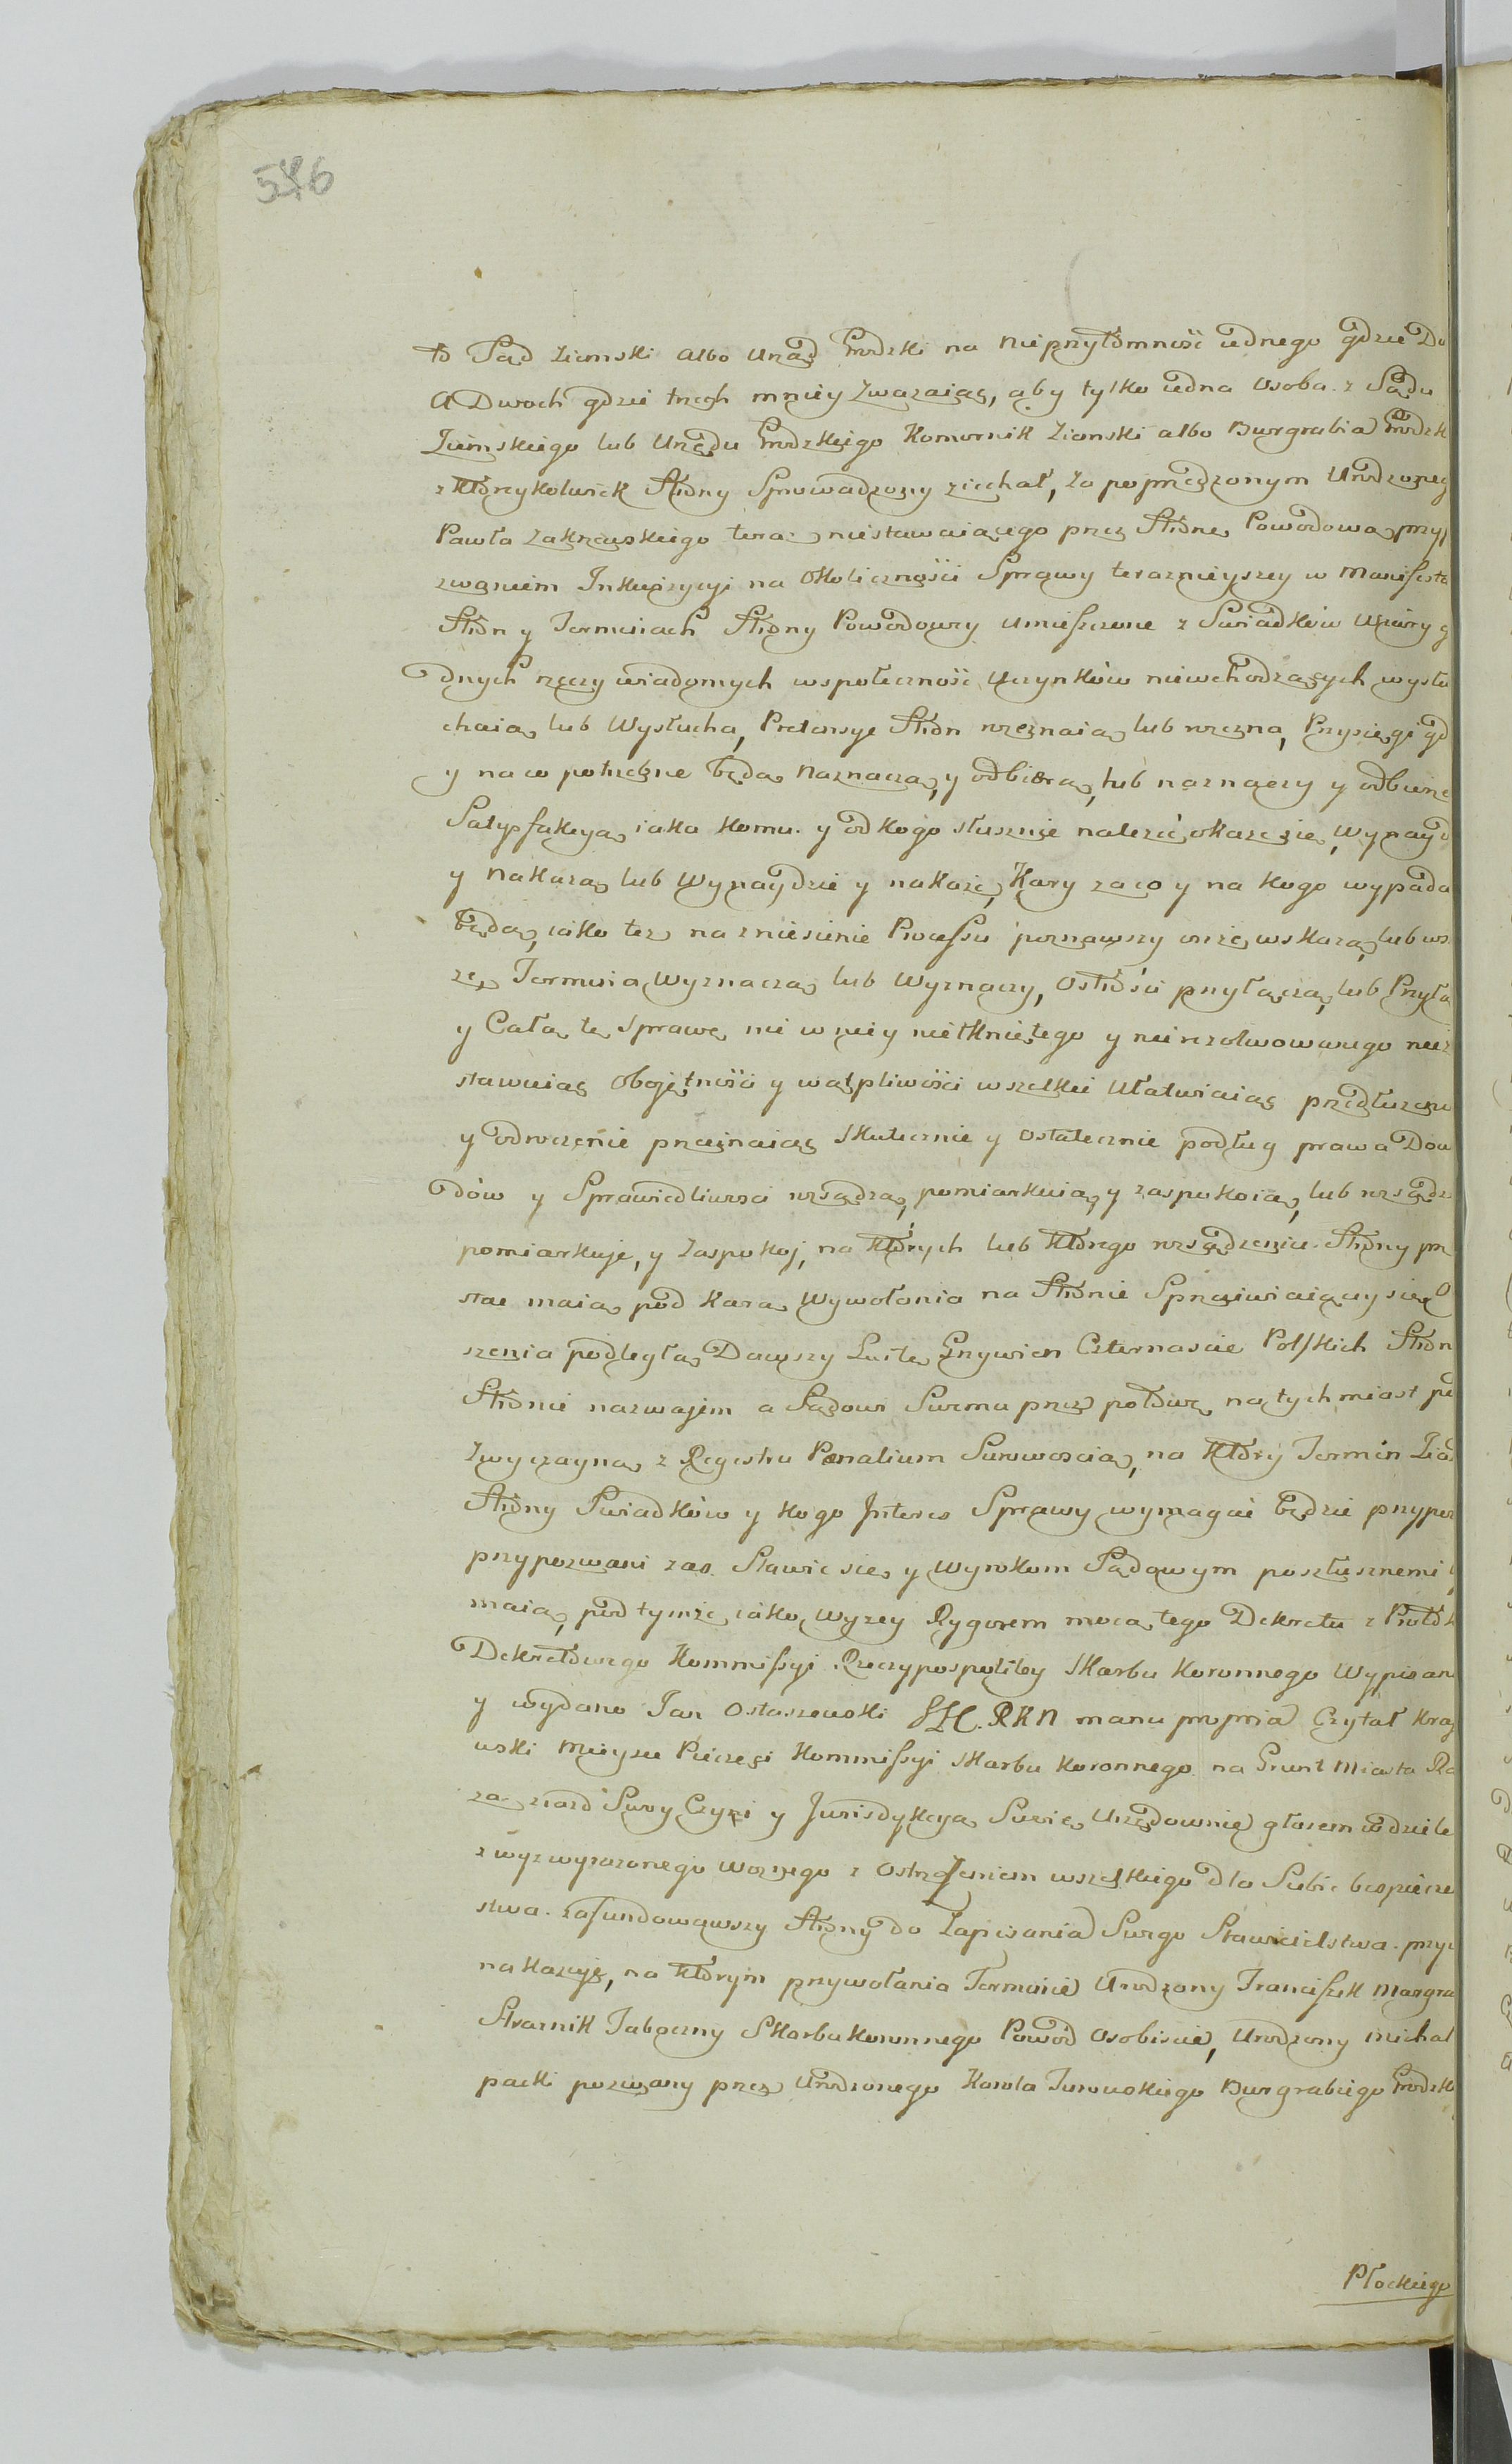 546
to Sąd Ziemski albo Urząd Grodzki na nieprzytomność iednego gdzie Do
A Dwoch gdzie trzech mniey Zwazaiąc, aby tylko iedna Osoba z Sądu
Ziemskiego lub Urzędu Grodzkiego Komornik Ziemski albo Burgrabia Grodzk
z ktoreykolwiek Strony Sprowadzony ziechał, za poprzedzonym Urodzoneg
Pawła Zakrzewskiego teraz niestawaiącego przez Stronę Powodową przy
zwaniem Inkwizycyi na Okoliczności Sprawy teraznieyszey w Manifesta
Stron y Terminach Strony Powodowey umieszczone z Swiadków Wiary g
dnych rzeczy wiadomych wspołeczność Uczynków niewchodzących wysłu
chaią lub Wysłucha, Pretensye Stron rozeznaią lub rozezna, Przysięgi gd
y na co potrzebne będą Naznaczą, y odbiorą, lub naznaczy y odbierze
Satysfakcyą iaka komu y od kogo słusznie należeć okaze się, Wynayd
y Nakazą lub Wynaydzie y nakaze, Kary za co y na kogo wypada
będą, iako tez na zniesienie Processu poznawszy onże wskazą, lub ws
ze, Termina Wyznaczą lub Wyznaczy, Ostrości przyłączą, lub Przyła
y Całą tę Sprawę nic w niey nietkniętego y nierezolwowanego nie z
stawuiąc Obojętności y wątpliwości wszelkie Ułatwiaiąc przedłuzenie
y odroczenie przeinaiąc Skutecznie y Ostatecznie podług prawa Dow
dów y Sprawiedliwosci rozsądzą, pomiarkuią, y zaspokoią, lub rozsądz
pomiarkuje, y Zaspokoj, na których lub którego rozsądzenie Strony prz
stac maią pod karą Wywołania na Stronie Sprzeiwiaiącey się O
szenia podległą Dawszy Luite Grzywien Czternascie Polskich Stron
Stronie nazwajem a Sądowi Swemu przez połowę natychmiast po
Zwyczayną z Regestru Pœnalium Surowoscią, na który Termin Zia
Strony Swiadków y kogo Interes Sprawy wymagać będzie przypoz
przypozwani zas Stawic się y Wyrokom Sądowym posztusznemi
maią, pod tymże iako Wyzey Rygorem mocą tego Dekretu z Protok
Dekretowego Kommissyi Rzeczypospolitey Skarbu Koronnego Wypisan
y wydano Jan Ostaszewski RKN manu propria Czytał Kraj
wski Mieysce Pieczęci Kommissyi Skarbu Koronnego na Grunt Miasta Ra
za ziazd Swoy Czyni y Jurisdykcyą Swoię Urzędownie głosem
z wyzwyrazonego Woznego z Ostrzezeniem wszelkiego dla Siebie bespiecze
stwa zafundowawszy Strony do Zapisania Swego Stawicielstwa przy
nakazuje, na którym przywołania Terminie Urodzony Franciszek Margra
Straznik Taboczny Skarbu Koronnego Powód Osobiscie, Urodzony Michał
packi pozwany przez Urodzonego Karola Turowskiego Burgrabiego Grodzk
Płockiego